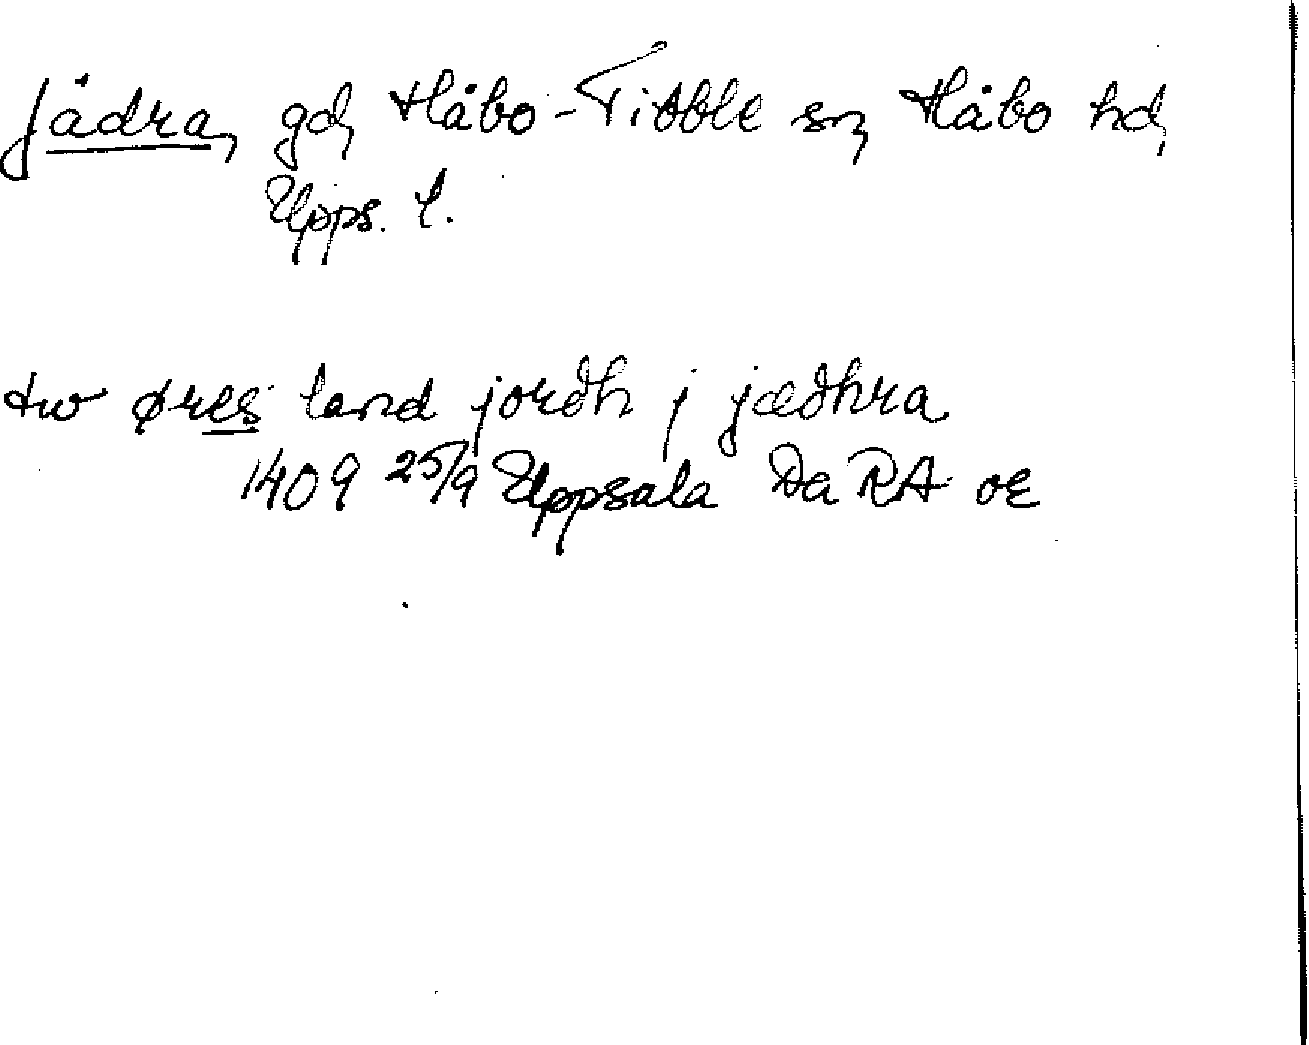 Jädra, gd, Håbo-Tibble sn, Håbo hd,
Upps. l.
tw øres land jordh j jædhra
1409 25/9 Uppsala Da RA oe